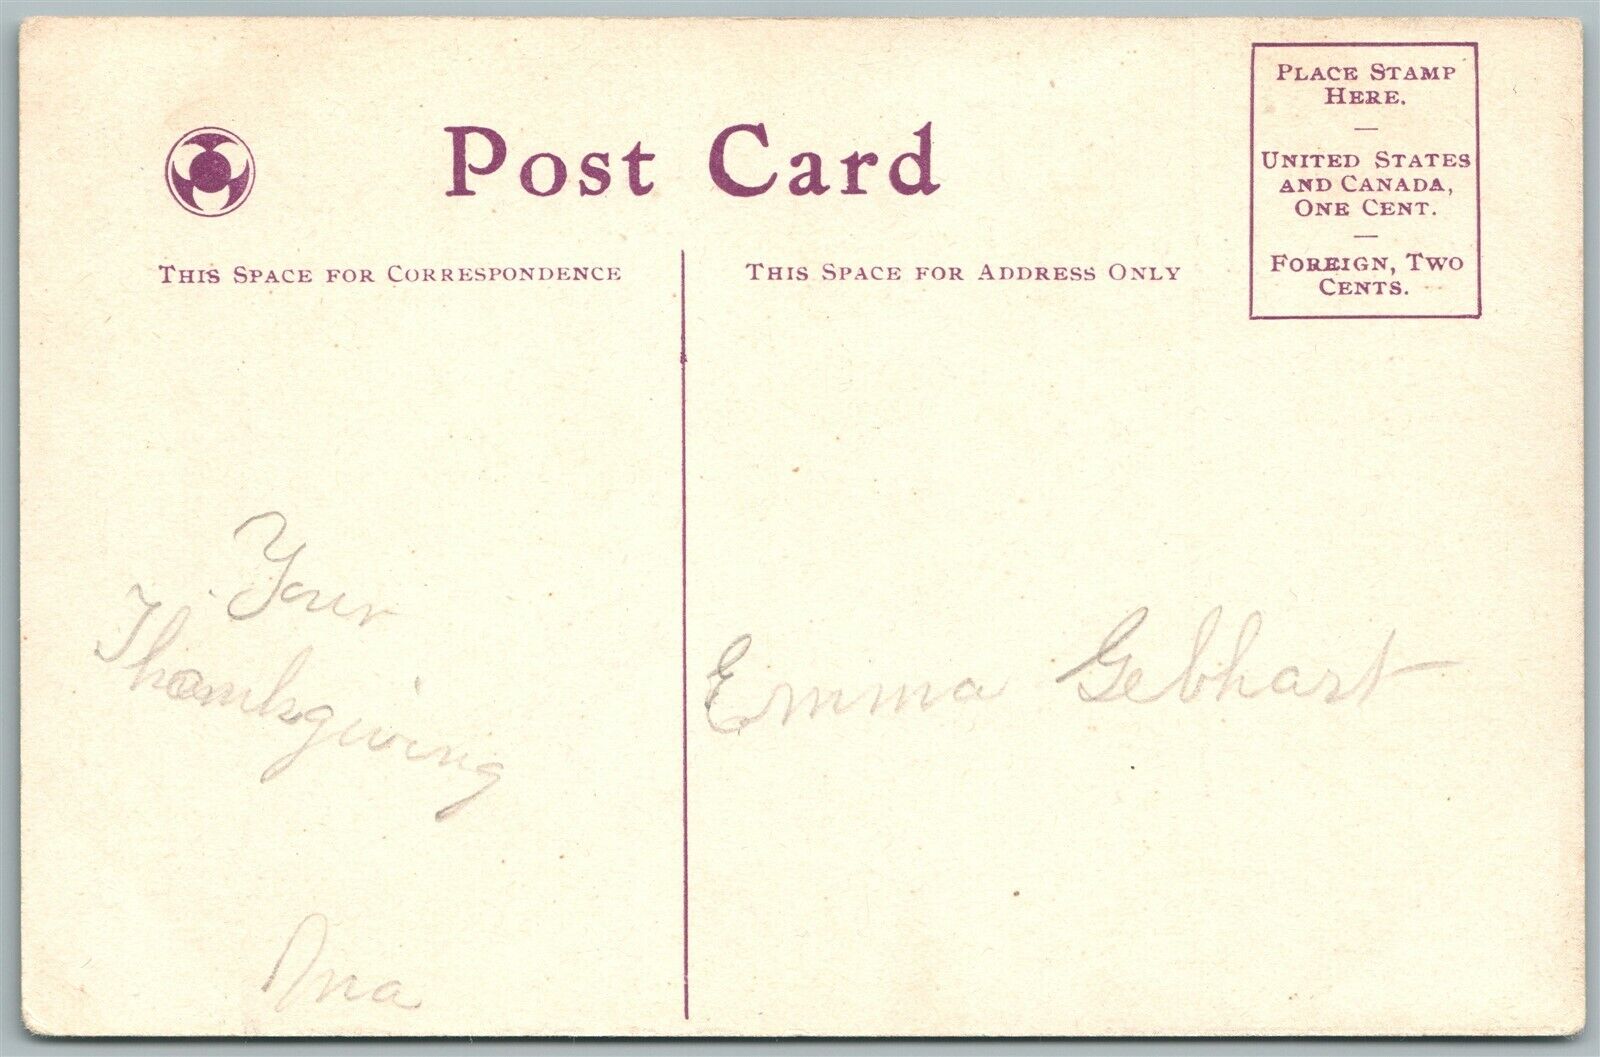 Post Card
PLACE STAMP
HERE.
UNITED STATES
AND CANADA,
ONE CENT.
FOREIGN, TWO
CENTS.
THIS SPACE FOR CORRESPONDENCE
THIS SPACE FOR ADDRESS ONLY
Your
Thanksgiving
Emma Gebhart